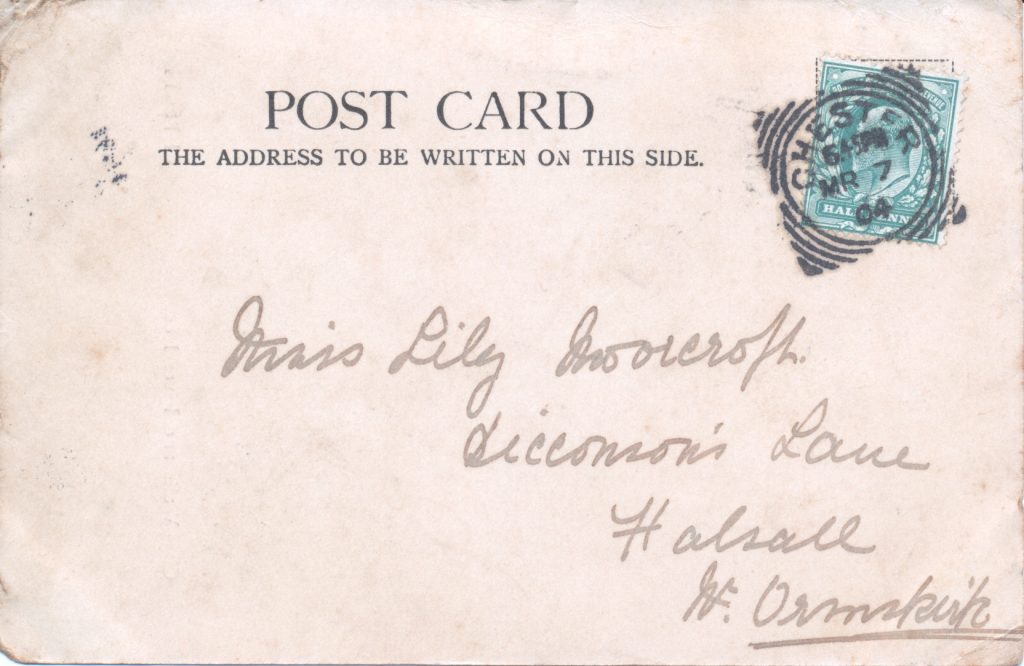 POST CARD
THE ADDRESS TO BE WRITTEN ON THIS SIDE.
CHESTER
MR 7
04
HALFPENNY
Miss Lily Moorcroft.
Dicconson's Lane
Halsall
Nr. Ormskirk